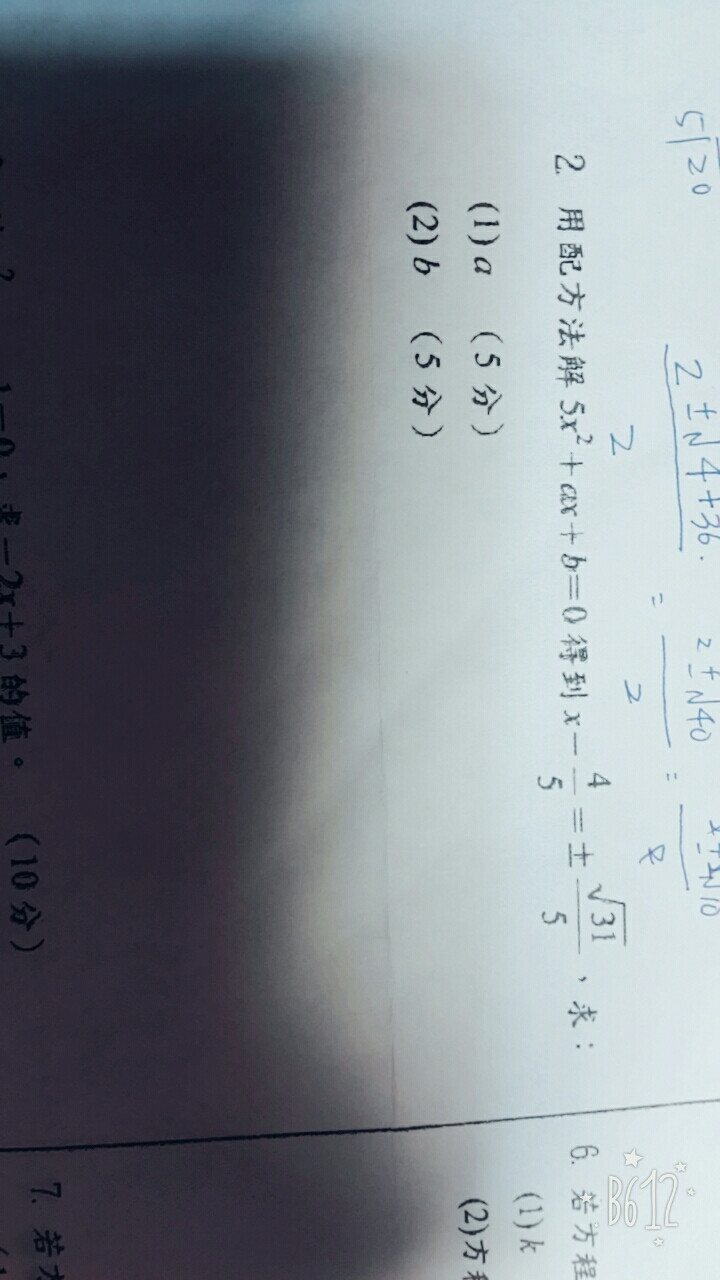 5 20
2±√4+36.
2
=
2±√40
2
=
2. 用配方法解 5x² + ax + b = 0 得到 x - 4/5 = ± √31/5 , 求 :
(1) a (5分)
(2) b (5分)
-2x+3的值。 (10分)
6. 若方程
(1) k
(2) 方程
7. 若方
B612